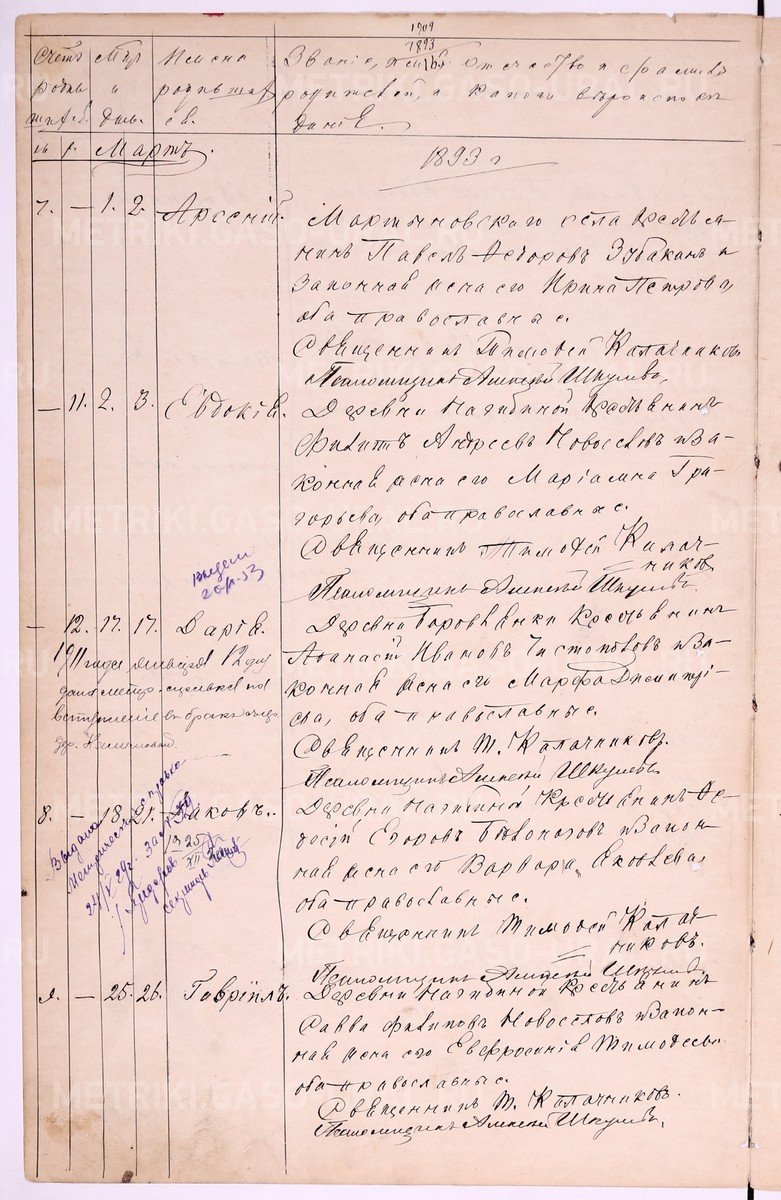 1893
Счетъ
родив
шихся.
Мѣр
и
день.
Имена
родившихся
Званіе, имя, отчество и фамилія
родителей, и какого вѣроисповѣ
данія.
м. ж. Мартъ.
1893 г
7. — 1. 2. Арсеній. Мартыновскаго села крестья-
нинъ Павелъ Ѳедоровъ Зубакинъ и
законная жена его Ирина Петрова,
оба православные.
Священникъ Тимоѳей Калачниковъ
Псаломщикъ Алексѣй Шкулевъ.
— 11. 2. 3. Евдокія. Деревни Нагибиной крестьянинъ
Филиппъ Андреевъ Новоселовъ и за-
конная жена его Маріамна Гри-
горьева, оба православные.
Священникъ Тимоѳей Калач-
никовъ
Псаломщикъ Алексѣй Шкулевъ.
— 12. 17. 17. Дарія. Деревни Боровлянки крестьянинъ
Аѳанасій Ивановъ Чистополовъ и за-
конная жена его Марѳа Димитрі-
ева, оба православные.
Священникъ Т. Калачниковъ.
Псаломщикъ Алексѣй Шкулевъ
1911 года января 12 дня
дана метр.
вступленіе въ бракъ
дер.
8. — 18. 21. Іаковъ. Деревни Нагибиной крестьянинъ Ѳе-
досій Егоровъ Бѣлоноговъ и закон-
ная жена его Варвара Яковлева,
оба православные.
Священникъ Тимоѳей Калач-
никовъ.
Псаломщикъ Алексѣй Шкулевъ.
Выдана
Метрическая справка
1925
XII
9. — 25. 26. Гавріилъ. Деревни Нагибиной крестьянинъ
Савва Филиповъ Новоселовъ и закон-
ная жена его Евфросинія Тимоѳеева
оба православные.
Священникъ Т. Калачниковъ.
Псаломщикъ Алексѣй Шкулевъ.